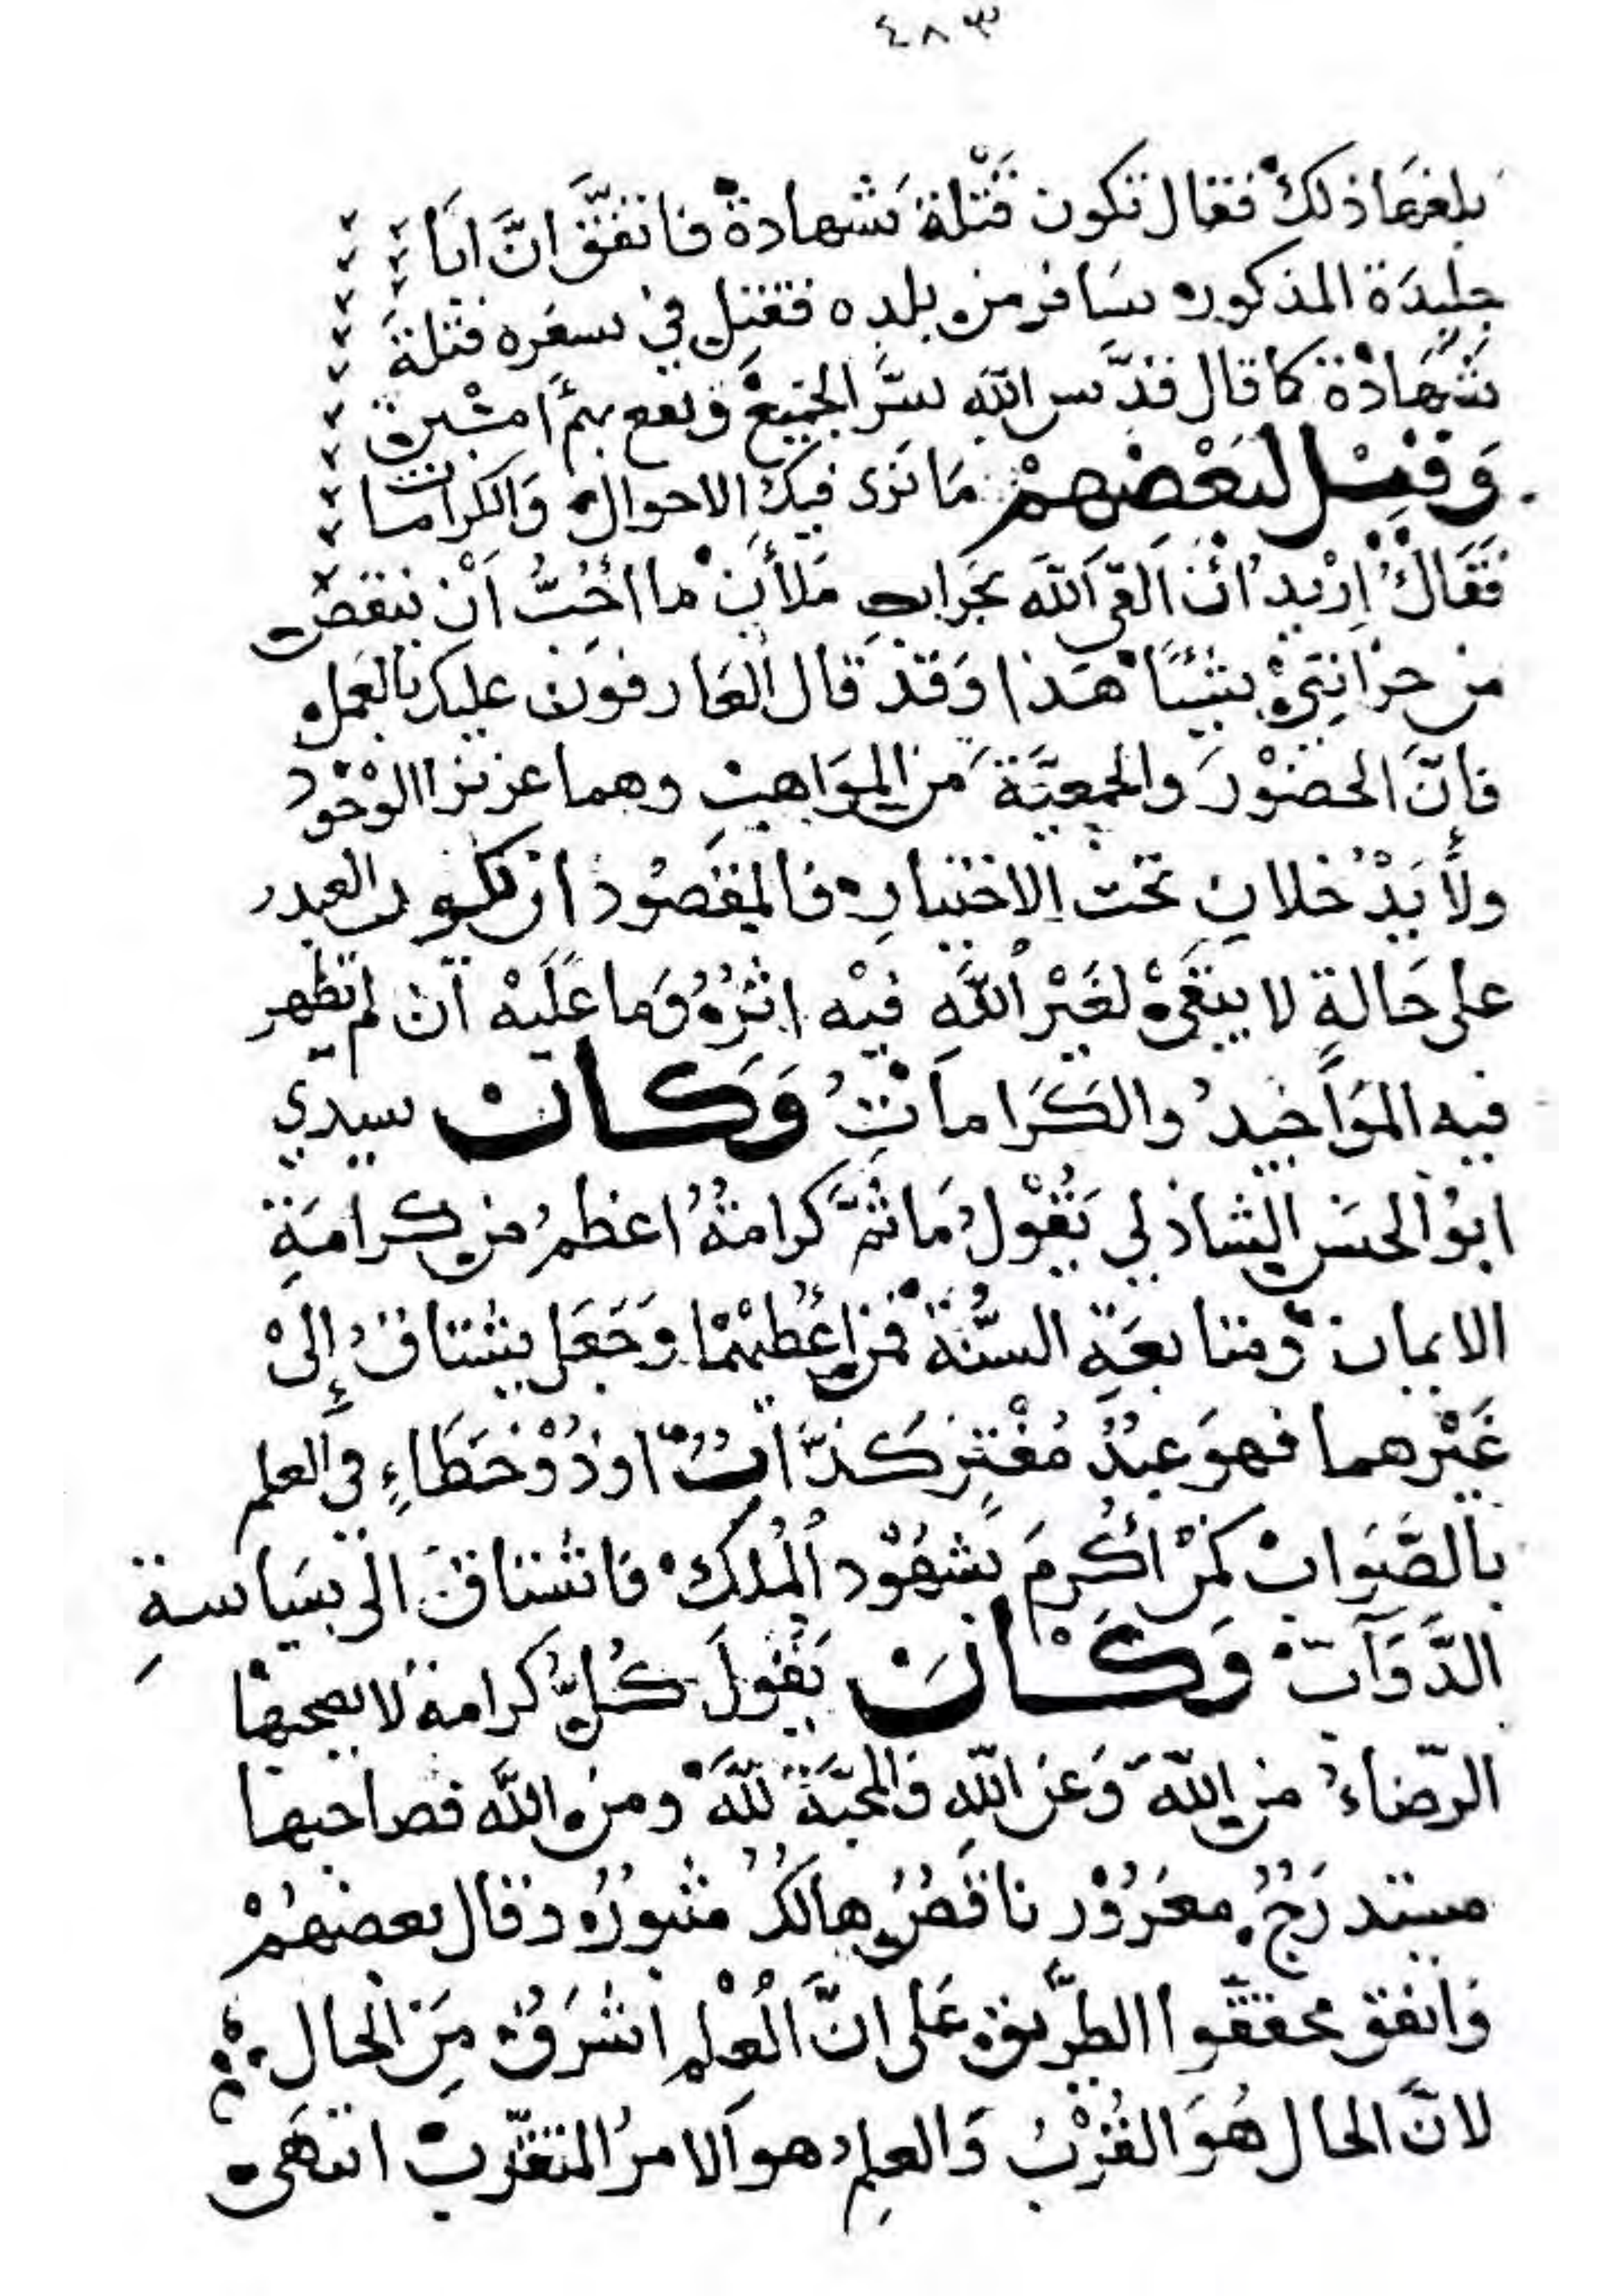 ٤٨٣
بلغها ذلك فقال تكون قتلة شهادة فاتفق انّ ابا
جليدة المذكور سافر من بلده فقتل في سفره قتلة
شهادة كما قال قدّس الله سرّ الجميع ونفع بهم امين
وقيل لبعضهم ما نرى فيك الاحوال والكرامات
فقال اريد ان القى الله بجراب ملأن ما احبّ ان ينقص
من خزانتي شيئا هذا وقد قال العارفون عليك بالعمل
فانّ الحضور والجمعيّة من المواهب وهما عزيزا الوجود
ولا يدخلان تحت الاختيار فالمقصود ان يكون العبد
على حالة لا يبقى لغير الله فيه اثره وما عليه ان لم تظهر
فيه المواجيد والكرامات وكان سيدي
ابو الحسن الشاذلي يقول ما ثمّ كرامة اعظم من كرامة
الايمان ومتابعة السنّة فمن اعطيهما وجعل يشتاق إلى
غيرهما فهو عبد مفتر كذّاب او ذو خطاء في العلم
بالصّواب كمن أكرم بشهود الملك فاشتاق الى سياسة
الدّوآب وكان يقول كلّ كرامة لا يصحبها
الرّضاء من الله وعن الله والمحبّة للّه ومن الله فصاحبها
مستدرج مغرور ناقص هالك مثبور وقال بعضهم
واتفق محققوا الطّريق على انّ العلم اشرف من الحال
لانّ الحال هو القرب والعلم هو الامر المتقرّب انتهى